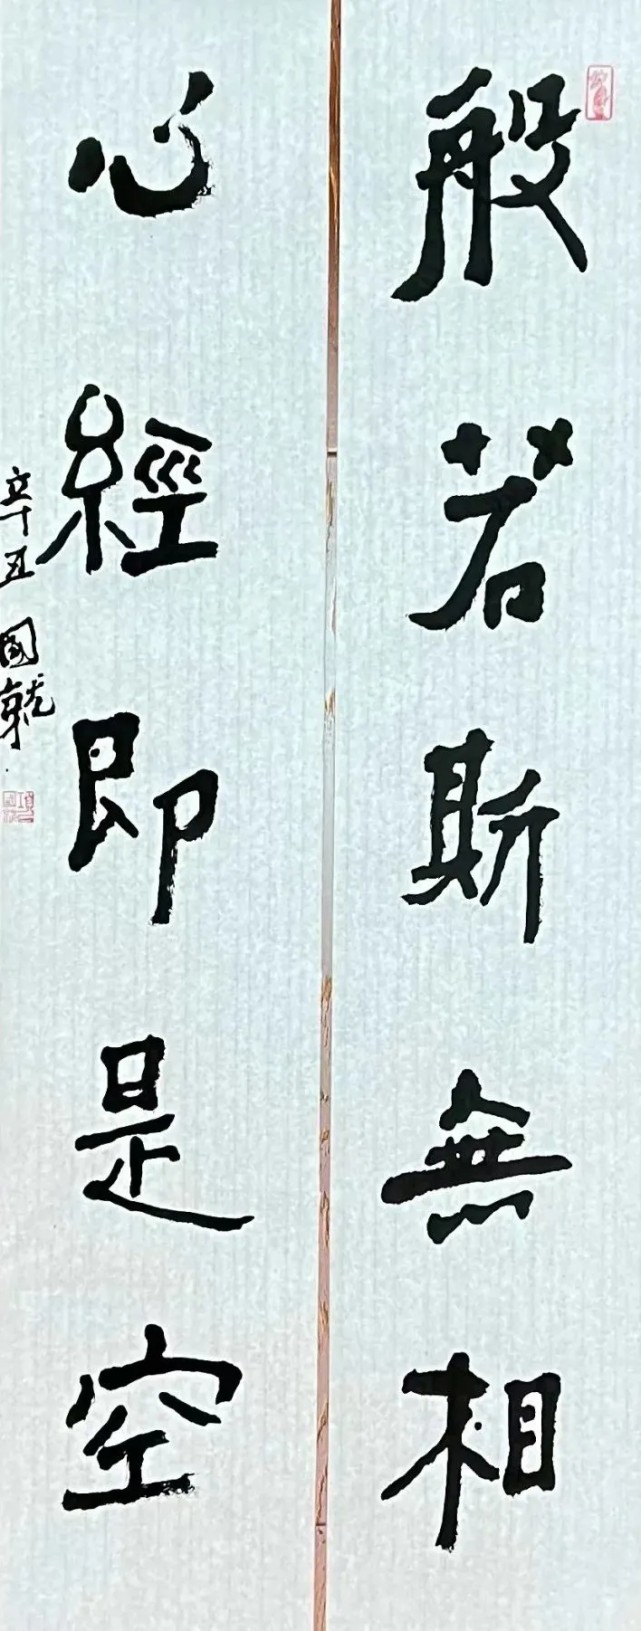 般若斯無相
心經即是空
辛丑 國就